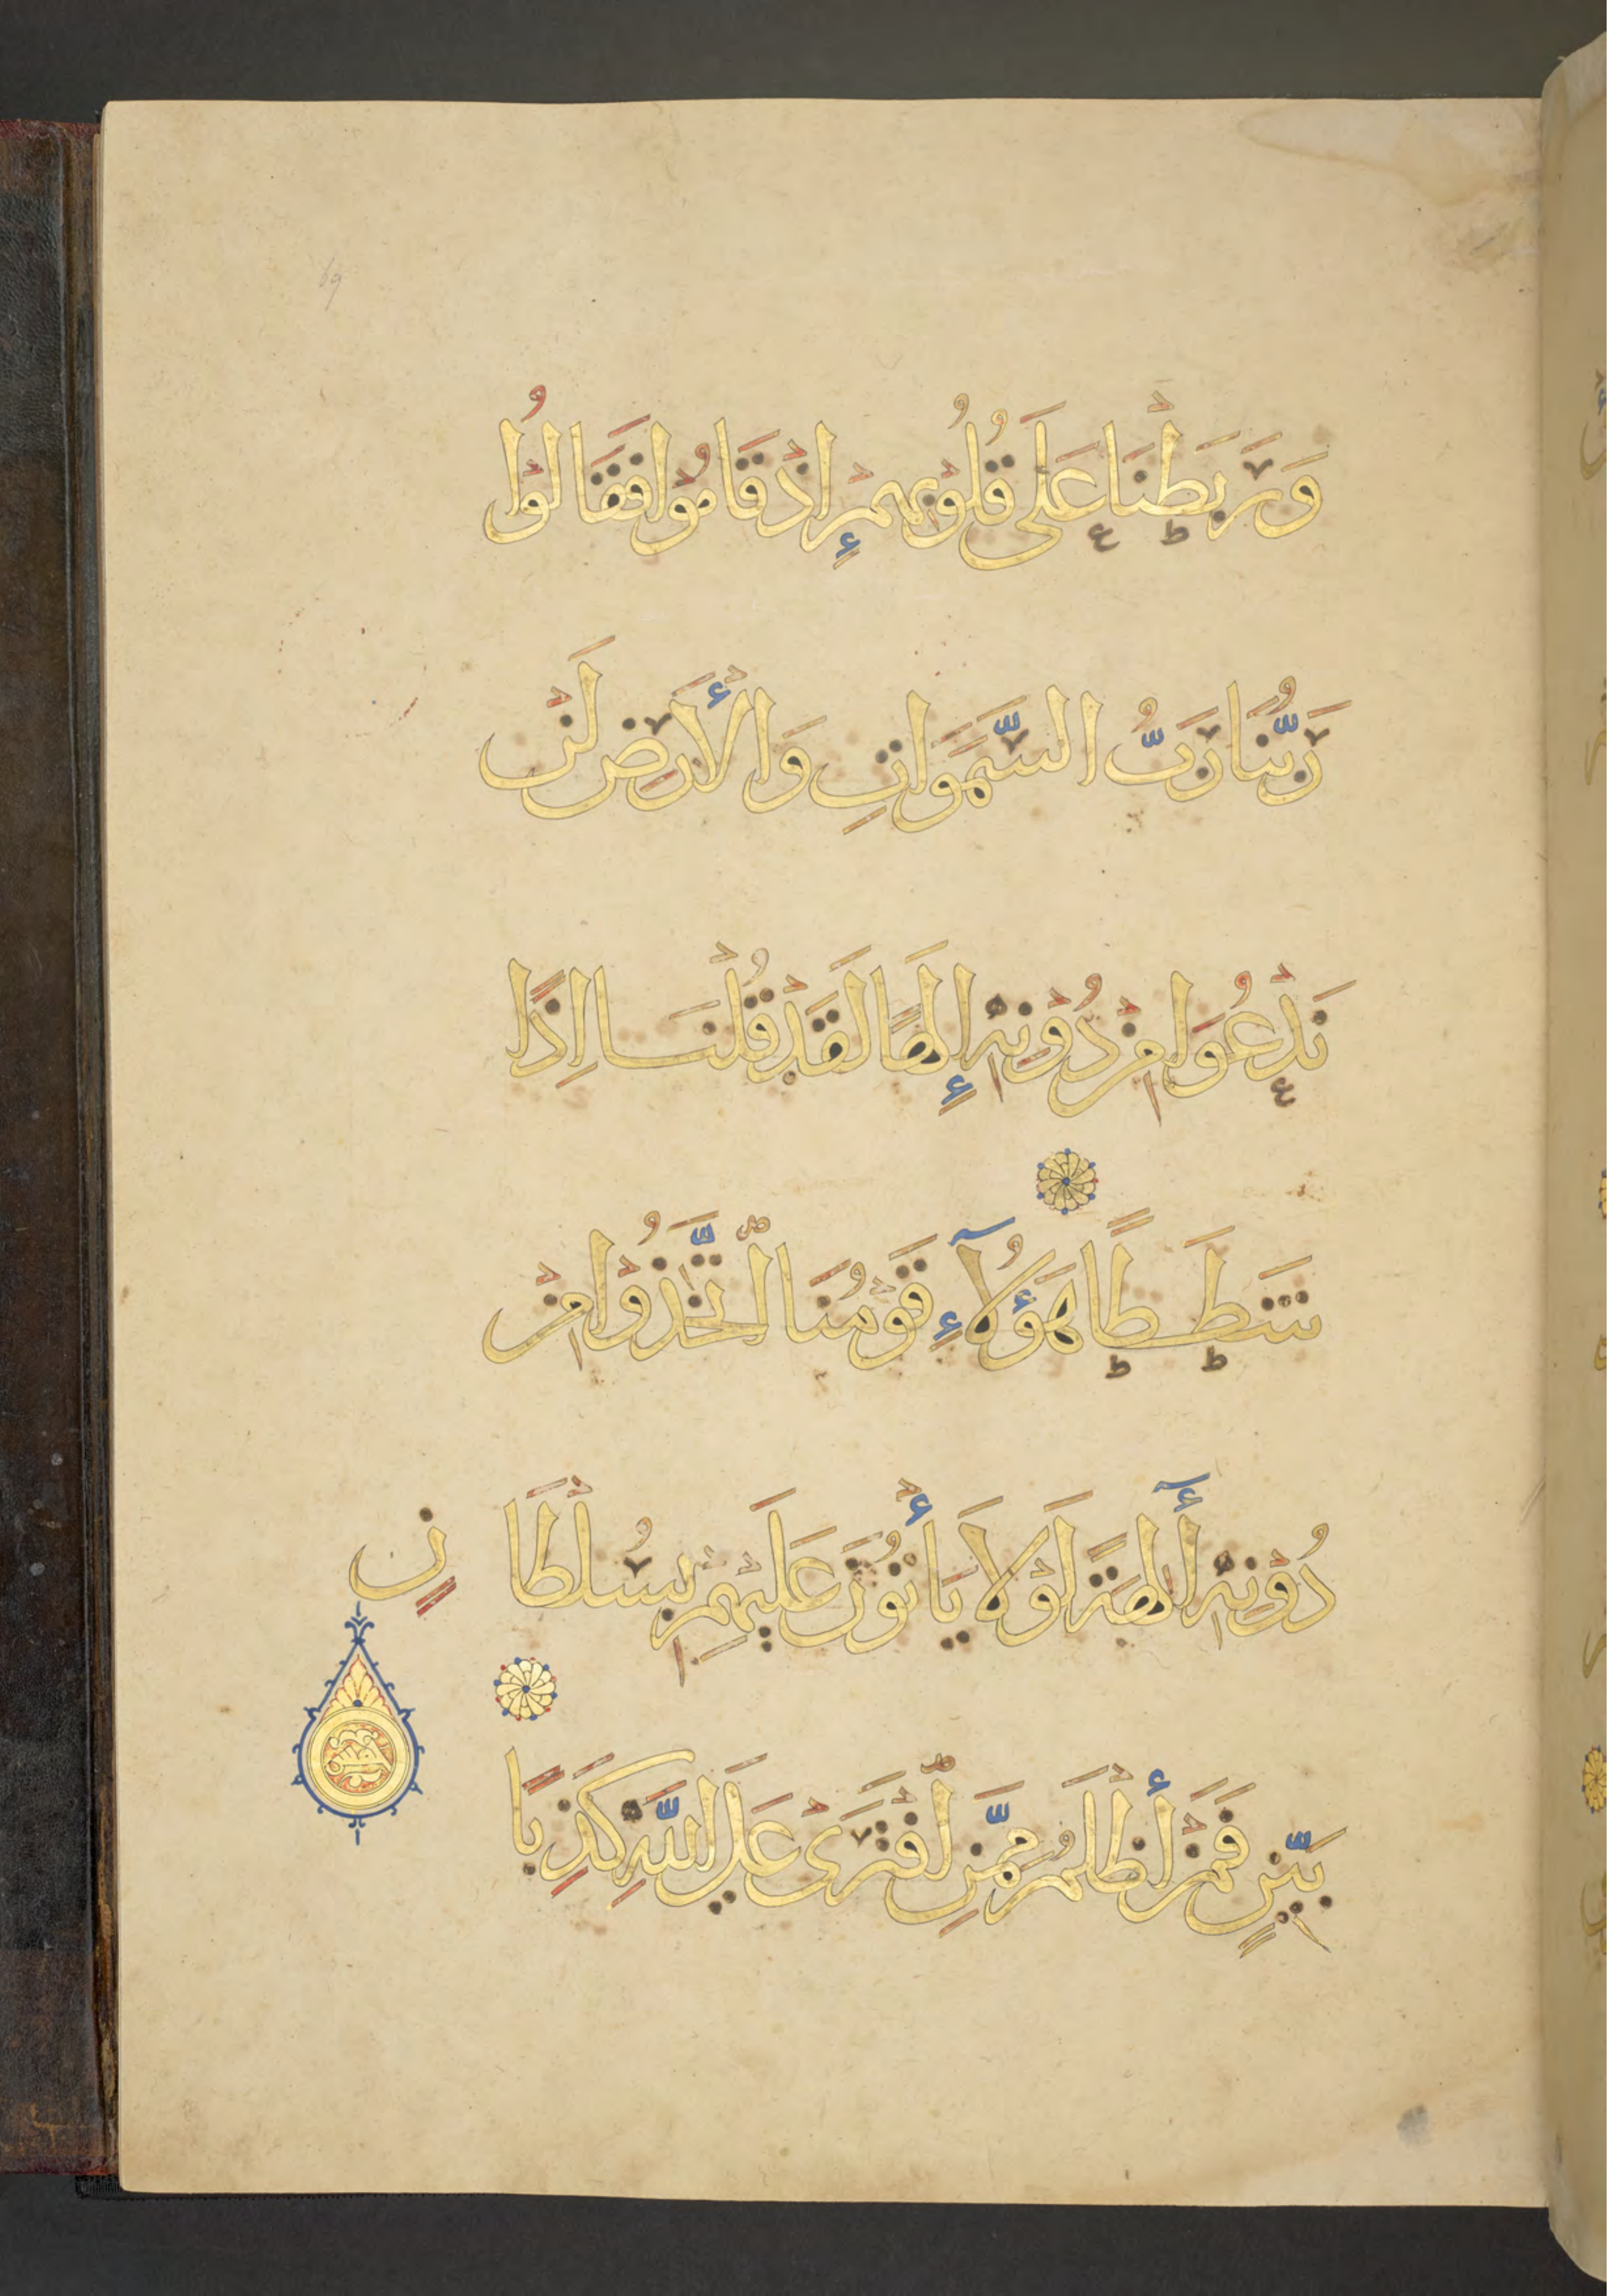 وَرَبَطْنَا عَلَى قُلُوْبِهِمْ إِذْ قَامُوْا فَقَالُوْا
رَبُّنَا رَبُّ السَّمَوَاتِ وَالْأَرْضِ لَنْ
نَدْعُوَا مِنْ دُوْنِهِ إِلَهًا لَقَدْ قُلْنَا إِذًا
شَطَطًا هَؤُلَآءِ قَوْمُنَا اتَّخَذُوْا مِنْ
دُوْنِهِ أٓلِهَةً لَوْلَا يَأْتُوْنَ عَلَيْهِمْ بِسُلْطَانٍ
بَيِّنٍ فَمَنْ أَظْلَمُ مِمَّنِ افْتَرَىْ عَلَي اللَّهِ كَذِبًا
69